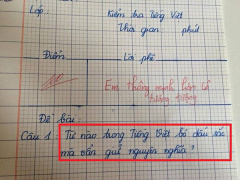 Lớp: Kiểm tra Tiếng Việt
Thời gian: phút
Điểm Lời phê
Em thông minh hơn cả
Đề bài:
Câu 1: Từ nào trong Tiếng Việt bỏ dấu sắc
mà vẫn giữ nguyên nghĩa?